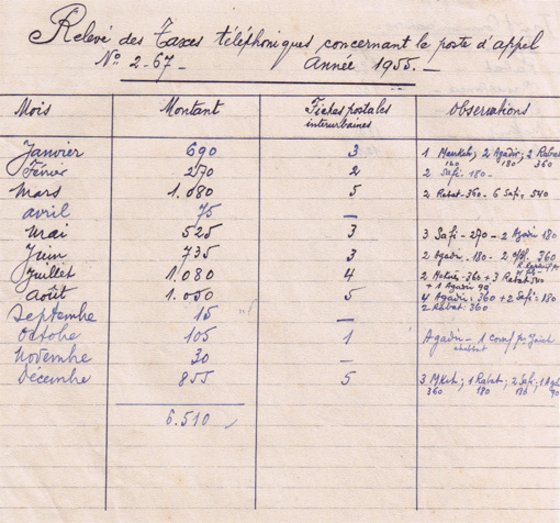 Relevé des Taxes téléphoniques concernant le poste d'appel
N° 2-67- Année 1955.-
Mois Montant Fiches postales interurbaines Observations
Janvier 690 3 1 Marrkch; 2 Agadir; 2 Rabat
120 180 360
Février 270 2 2 Safi. 180-
Mars 1.080 5 2 Rabat-360- 6 Safi. 540
avril 75 —
Mai 525 3 3 Safi-270-2 Agadir 180
Juin 735 3 2 Agadir. 180-2 360
Juillet 1.080 4 2 360 + 3 Rabat 540
+ 1 Agadir 90
Août 1.050 5 4 Agadir: 360 + 2 Safi: 180
2 Rabat: 360
Septembe 15 —
Octobe 105 1 Agadir-1
Novembe 30 —
Décembe 855 5 3 Mkch; 1 Rabat; 2 Safi; 1 Agdr
360 180 180 90
6.510